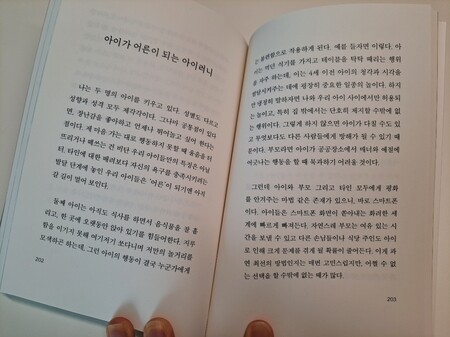 아이가 어른이 되는 아이러니
나는 두 명의 아이를 키우고 있다. 성별도 다르고
성향과 성격 모두 제각각이다. 그러나 공통점이 있다
면, 장난감을 좋아하고 언제나 뛰어놀고 싶어 한다는
점이다. 제 마음 가는 대로 행동하지 못할 때 울음을 터
뜨리거나 떼쓰는 건 비단 우리 아이들만의 특징은 아닐
터. 타인에 대한 배려보다 자신의 욕구를 충족시키려는
발달 단계에 놓인 우리 아이들은 '어른'이 되기엔 아직
갈 길이 멀어 보인다.
둘째 아이는 아직도 식사를 하면서 음식물을 잘 흘
리고, 한 곳에 오랫동안 앉아 있기를 힘들어한다. 지루
함을 이기지 못해 여기저기 쏘다니며 저만의 놀거리를
모색하곤 하는데, 그런 아이의 행동이 결국 누군가에게
202
는 불편함으로 작용하게 된다. 예를 들자면 이렇다. 아
이는 작던 식기를 가지고 테이블을 탁탁 때리는 행위
를 자주 하는데, 이는 4세 이전 아이의 청각과 시각을
발달시켜주는 데에 굉장히 중요한 일종의 놀이다. 하지
만 냉정히 말하자면 나와 우리 아이 사이에서만 허용되
는 놀이고, 특히 집 밖에서는 단호히 제지할 수밖에 없
는 행위이다. 그렇게 하지 않으면 아이가 다칠 수도 있
고 무엇보다도 다른 사람들에게 방해가 될 수 있기 때
문이다. 부모라면 아이가 공공장소에서 매너와 예절에
어긋나는 행동을 할 때 묵과하기 어려울 것이다.
그런데 아이와 부모 그리고 타인 모두에게 평화
를 안겨주는 마법 같은 존재가 있으니, 바로 스마트폰
이다. 아이들은 스마트폰 화면이 쏟아내는 화려한 세
계에 빠르게 빠져든다. 자연스레 부모는 여유 있는 시
간을 보낼 수 있고 다른 손님들이나 식당 주인도 아이
로 인해 크게 문제를 겪게 될 확률이 줄어든다. 이게 과
연 최선의 방법인지는 매번 고민스럽지만, 어쩔 수 없
는 선택을 할 수밖에 없는 때가 많다.
203